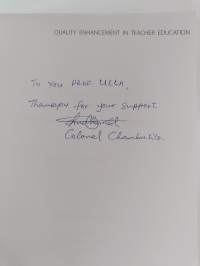 QUALITY ENHANCEMENT IN TEACHER EDUCATION
TO YOU PROF. ULLA,
Thankyou for your support.
Colonel